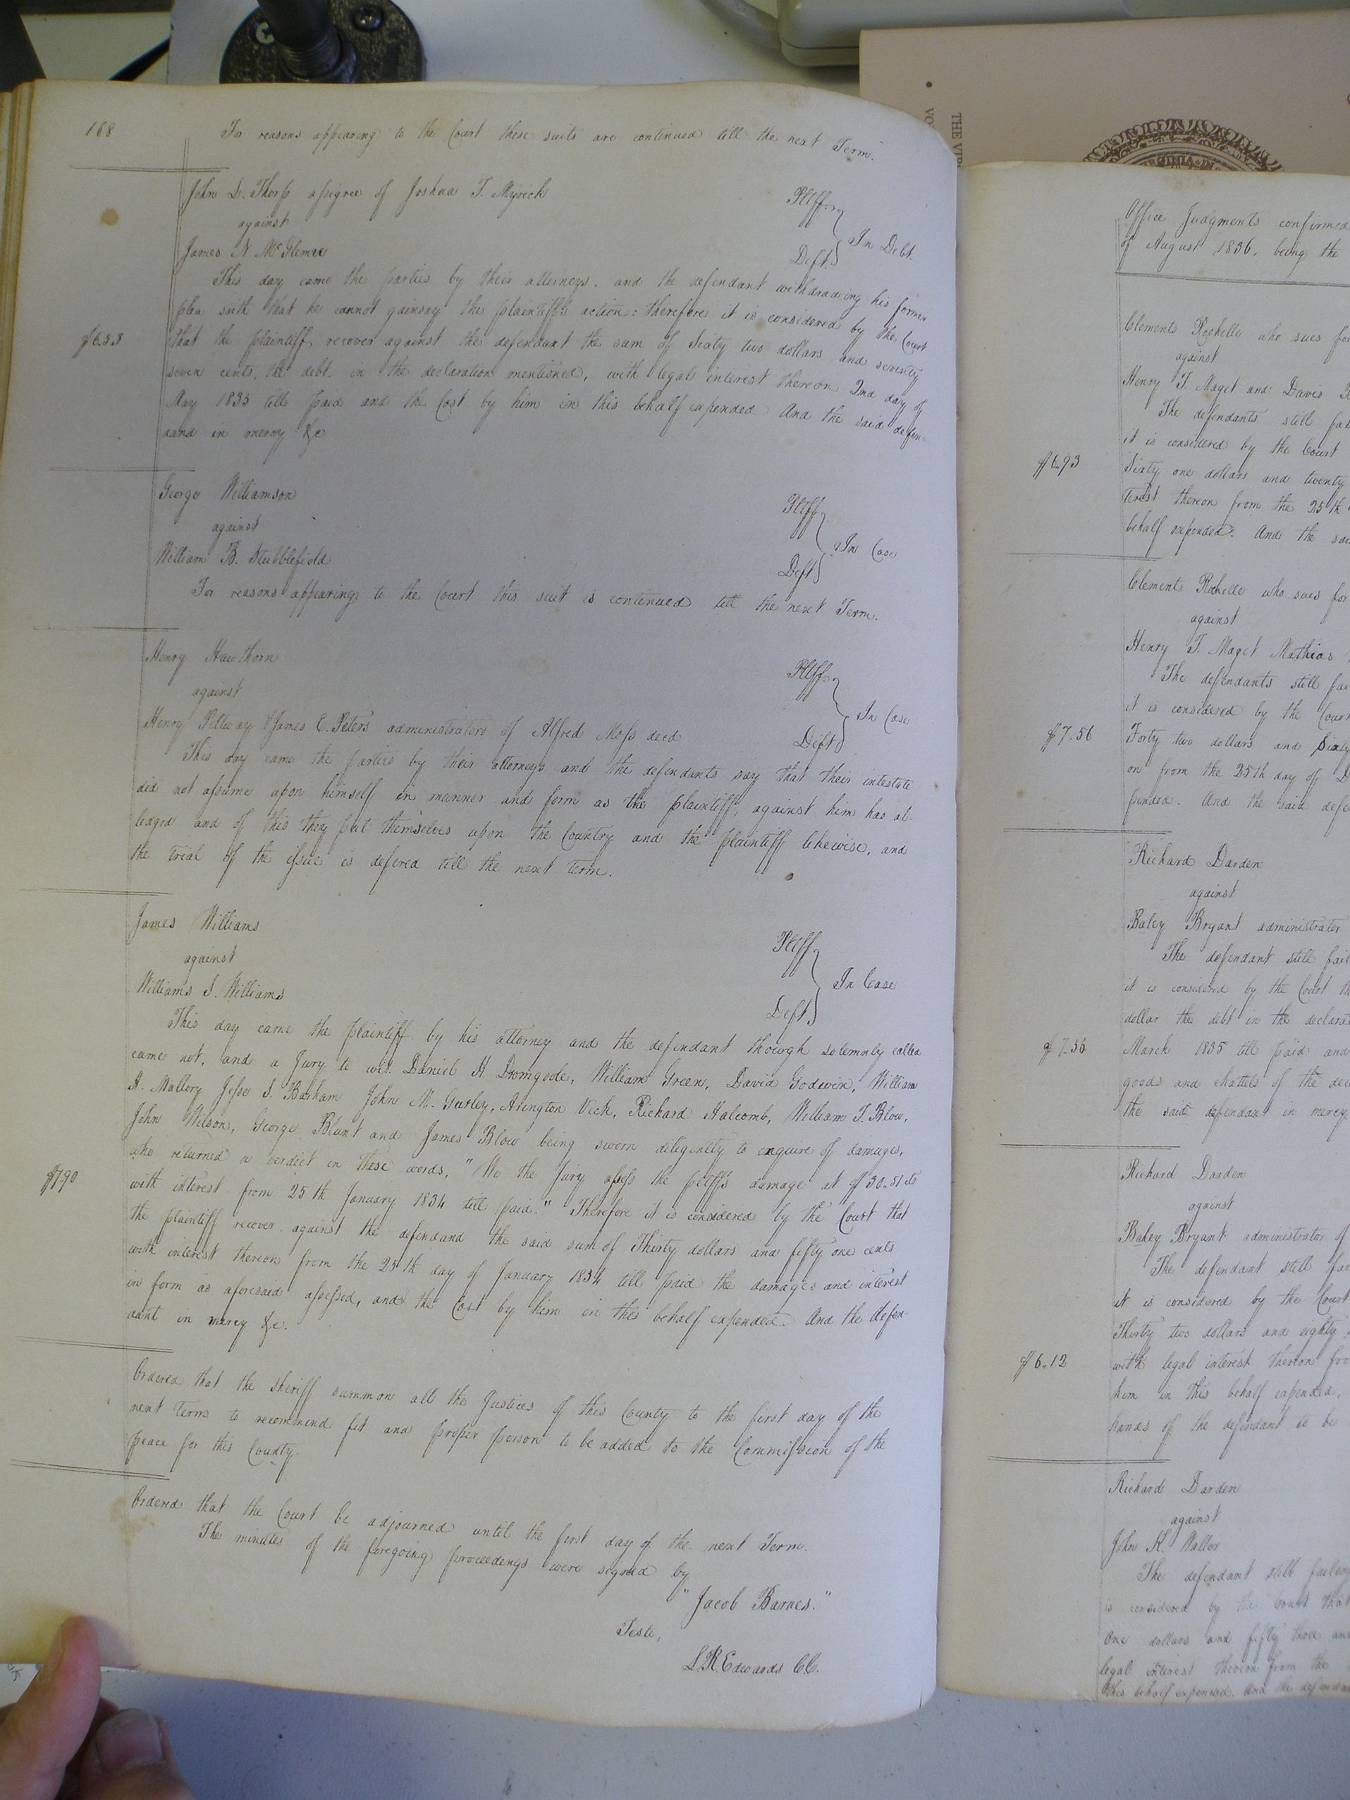 168
For reasons appearing to the Court these suits are continued till the next Term.
John D. Thorp assignee of Joshua T. Myrick Pltff
against In Debt.
James N. McLemore Deft.
This day came the parties by their attorneys, and the defendant withdrawing his former
plea saith that he cannot gainsay the plaintiff's action: therefore it is considered by the Court
$6.53
that the plaintiff recover against the defendant the sum of Sixty two dollars and seventy
seven cents, the debt in the declaration mentioned, with legal interest thereon 2nd day of
May 1835 till paid and the Cost by him in this behalf expended. And the said defen-
dand in mercy &c
George Williamson Pltff
against In Case
William B. Stubblefield Deft
For reasons appearing to the Court this suit is continued till the next Term.
Henry Hawthorn Pltff
against In Case
Henry Pettway & James E. Peters administrators of Alfred Moss decd Deft
This day came the parties by their attorneys and the defendants say that their intestate
did not assume upon himself in manner and form as the plaintiff, against him has al-
leaged and of this they put themselves upon the Country and the plaintiff likewise, and
the trial of the issue is defered till the next term.
James Williams Pltff
against In Case
Williams J. Williams Deft.
This day came the plaintiff by his attorney and the defendant though solemnly called
came not, and a Jury to wit. Daniel H William Green, David Godwin, William
H. Mallory Jesse J. Barham John M. Gurley, Arington Vick, Richard Halcomb, William T. Blow,
John Wilson, George Blunt and James Blow being sworn diligently to enquire of damages,
who returned a verdict in these words, "We the jury assess the pltff's damage at $30.51 cts
$7.90
with interest from 25th January 1834 till paid." Therefore it is considered by the Court that
the plaintiff recover against the defendand the said sum of Thirty dollars and fifty one cents
with interest thereon from the 25th day of January 1834 till paid the damages and interest
in form as aforesaid assessed, and the Cost by him in this behalf expended. And the defen-
dant in mercy &c.
Ordered that the Sheriff summon all the Justices of this County to the first day of the
next Term to recommend fit and proper person to be added to the Commission of the
peace for this County.
Ordered that the Court be adjourned until the first day of the next Term.
The minutes of the foregoing proceedings were signed by
"Jacob Barnes."
Teste,
L. R. Edwards CC.
Office Judgments confirmed
of August 1836. being the
Clements Rochelle who sues for
against
Henry T. Maget and Davis
The defendants still fai
it is considered by the Court
$6.93
Sixty one dollars and twenty
terest thereon from the 25th
behalf expended. And the sai
Clements Rochelle who sues for
against
Henry T. Maget Mathias
The defendants still fai
it is considered by the Court
$7.56
Forty two dollars and Sixty
on from the 25th day of D
pended. And the said defe
Richard Darden
against
Baley Bryant administrator
The defendant still fail
it is considered by the Court th
dollar the debt in the declara
$7.56
March 1835 till paid and
goods and chattels of the dec
the said defendant in mercy
Richard Darden
against
Baley Bryant administrator of
The defendant still fai
it is considered by the Court
Thirty two dollars and eighty
$6.12
with legal interest thereon fro
him in this behalf expended,
hands of the defendant to be
Richard Darden
against
John K. Waller
The defendant still failing
is considered by the Court that
One dollars and fifty three and
legal interest thereon from the
this behalf expended. And the defendan
THE VIR
VO
VIRGINIA